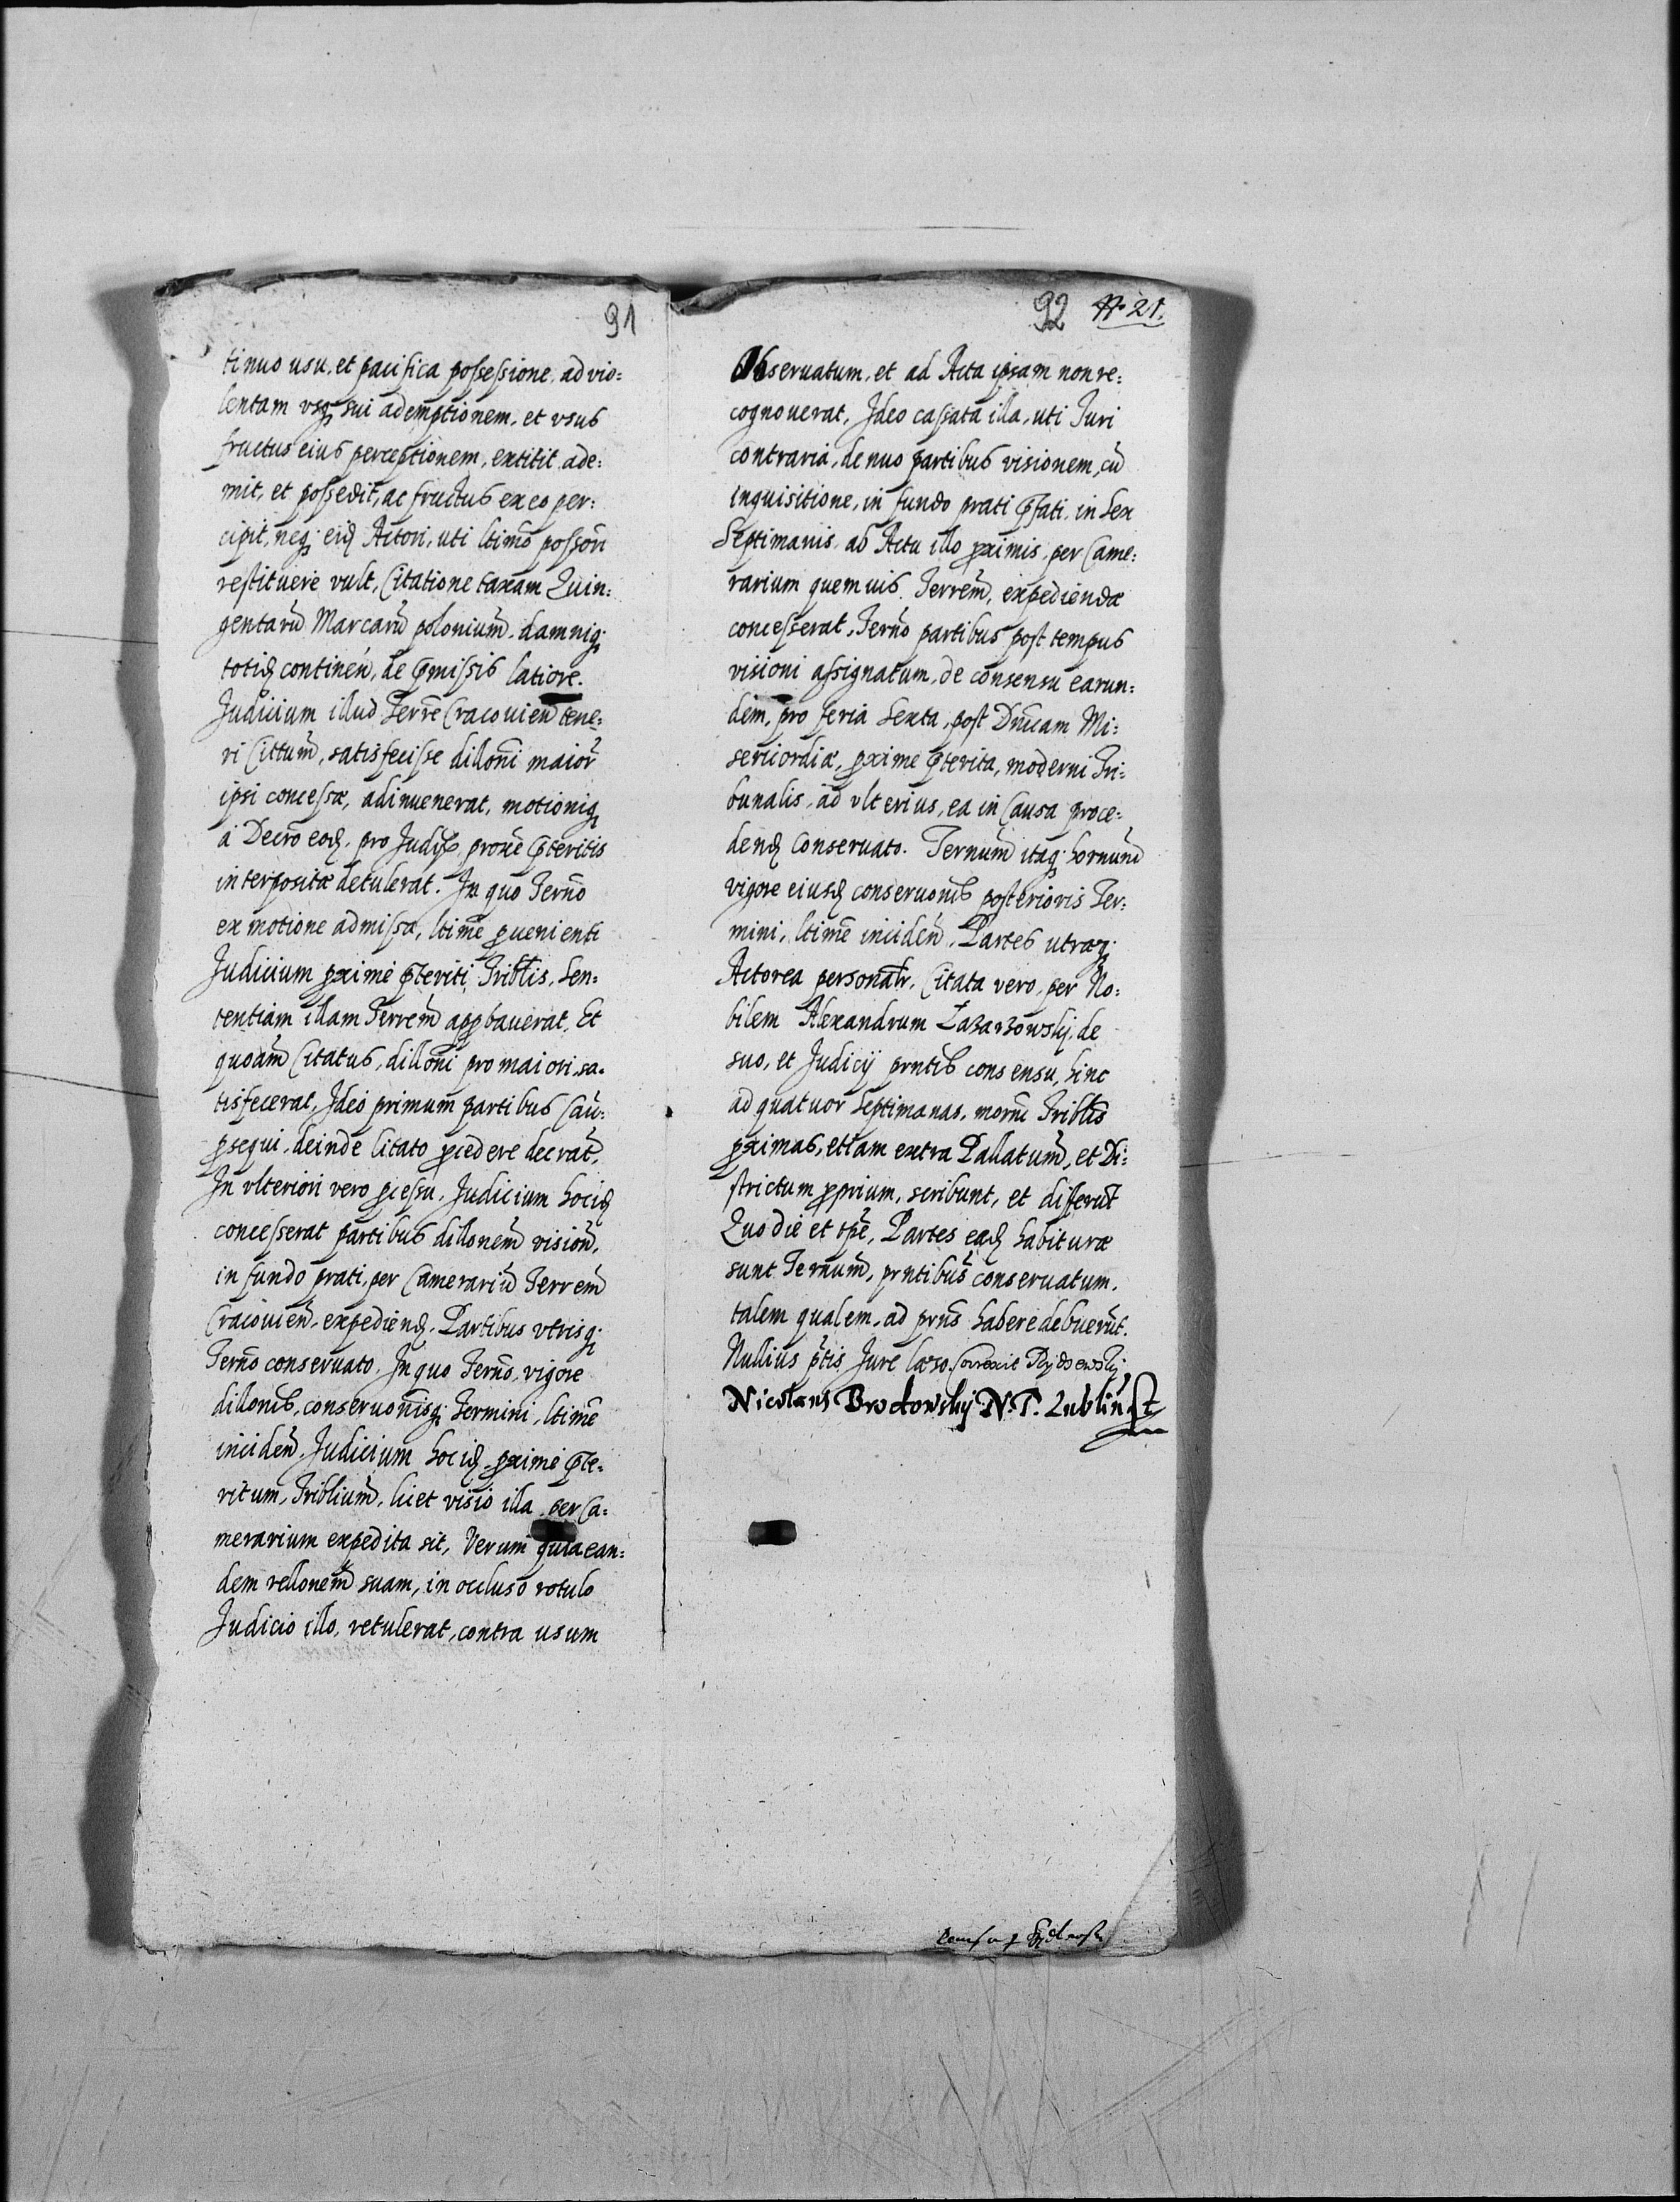 91
tinuo usu, et pacifica possessione, ad vio=
lentam vsq; sui ademptionem, et vsus
fructus eius perceptionem, extitit ade=
mit, et possedit, ac fructus ex eo per=
cipit, neq; eid Actori, uti ltimo possori
restituere vult, Citatione taxam Quin=
gentarũ Marcarũ polonium̃. damniq;
totid continen̄, de p̄missis latiore.
Judicium illud Terrẽ Cracouien̄ tene=
ri Cittum̃, satisfecisse dillon̄i maior̄
ipsi concessæ, adinuenerat, motioniq;
à Decr̃o eod. pro Judijs proxẽ p̄teritis
interpositæ detulerat. In quo Term̃o
ex motione admissa, ltimẽ ꝓuenienti
Judicium ꝓximè p̄teriti Tribl̃is, Sen=
tentiam illam Terren̄ apꝓbauerat. Et
quoãm Citatus, dillon̄i pro maiori sa=
tisfecerat, Ideo primum partibus Cau:
ꝓsequi, deinde Citato ꝓcedere decrat̃.
In vlteriori vero ꝓcessu, Judicium hocid
concesserat partibus dillonem̃ vision̄,
in fundo prati, per Camerariũ Terren̄
Cracouien̄, expediend, Partibus vtrisq;
Term̃o conseruato. In quo Term̃o, vigore
dillon̄is, conseruon̄isq; Termini, ltimẽ
inciden̄, Judicium hocid ꝓximè p̄te=
ritum, Triblium̃, licet visio illa per Ca=
merarium expedita sit, Verum quia ean=
dem rellonem̃ suam, in occluso rotulo
Judicio illo, retulerat, contra usum
92 21.
Obseruatum, et ad Acta ipsam non re=
cognouerat, Ideo cassata illa, uti Juri
contraria, denuo partibus visionem, cũ
inquisitione, in fundo prati p̄fati, in Sex
Septimanis, ab Actu illo ꝓximis, per Came=
rarium quemuis Terren̄, expediendæ
concesserat, Term̃o partibus post tempus
visioni assignatum, de consensu earun=
dem, pro feria Sexta, post Dn̄icam Mi=
sericordiæ, ꝓxime p̄terita, moderni Tri=
bunalis, ad vlterius, ea in Causa proce=
dend conseruato. Ternum̃ itaq; hornum̃
vigore eiusd conseruon̄is posterioris Ter=
mini, ltimẽ inciden̄, Partes utræq;
Actorea personalr̃, Citata vero, per No=
bilem Alexandrum Łazarzowskij, de
suo, et Judicij pr̃ntis consensu, hinc
ad quatuor Septimanas, morn̄i Tribl̃is
ꝓximas, etiam extra Pallatum̃, et Di=
strictum ꝓprium, scribunt, et differũt
Quo die et tp̃e, Partes eæd habituræ
sunt Ternum̃, pr̃ntibus conseruatum.
talem qualem, ad pr̃ns habere debuerũt.
Nullius p̃tis Jure læso. Correxit
Nicolaus Brodowskij N. T. Lublin̄st